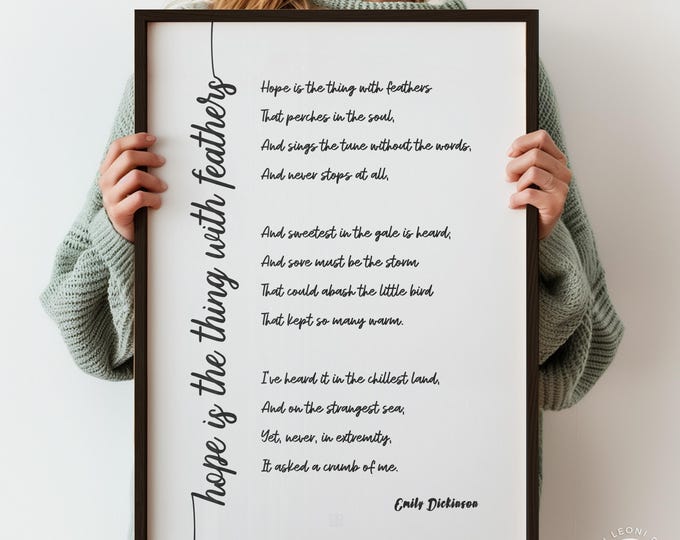 hope is the thing with feathers
Hope is the thing with feathers
That perches in the soul,
And sings the tune without the words,
And never stops at all,
And sweetest in the gale is heard,
And sore must be the storm
That could abash the little bird
That kept so many warm.
I've heard it in the chillest land,
And on the strangest sea,
Yet, never, in extremity,
It asked a crumb of me.
Emily Dickinson
LEONI